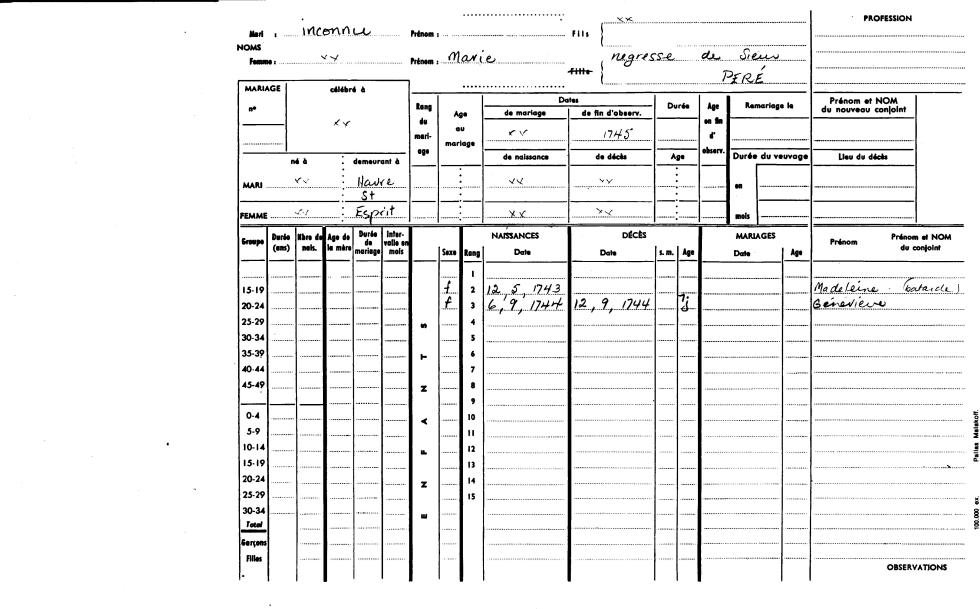 xx PROFESSION
Mari : inconnu Prénom : Fils
NOMS
Femme : xx Prénom : Marie fille negresse de Sieur
PERÉ
MARIAGE célébré à
n° xx
Rang du mari- age
Age au mariage
Dates
de mariage de fin d'observ.
xx 1745
Durée
Age en fin d' observ.
Remariage le
Prénom et NOM
du nouveau conjoint
né à demeurant à
de naissance de décès Age
Durée du veuvage Lieu du décès
MARI xx Havre xx xx en
St
FEMME xx Esprit xx xx mois
Groupe
Durée (ans)
Nbre de nais.
Age de la mère
Durée de mariage
Inter- valle en mois
ENFANTS
Sexe Rang
NAISSANCES Date
DÉCÈS Date s. m. Age
MARIAGES Date Age
Prénom
Prénom et NOM
du conjoint
1
15-19 f 2 12, 5, 1743 Madeleine (batarde)
20-24 f 3 6, 9, 1744 12, 9, 1744 7j Génevieve
25-29 4
30-34 5
35-39 6
40-44 7
45-49 8
9
0-4 10
5-9 11
10-14 12
15-19 13
20-24 14
25-29 15
30-34
Total
Garçons
Filles
OBSERVATIONS
100.000 ex. Pallas Malakoff.